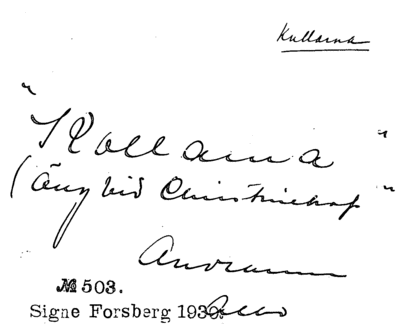 Kullarna
"Kollarna"
(Äng vid Christinehof"
Andrarum
№ 503.
Signe Forsberg 1930.